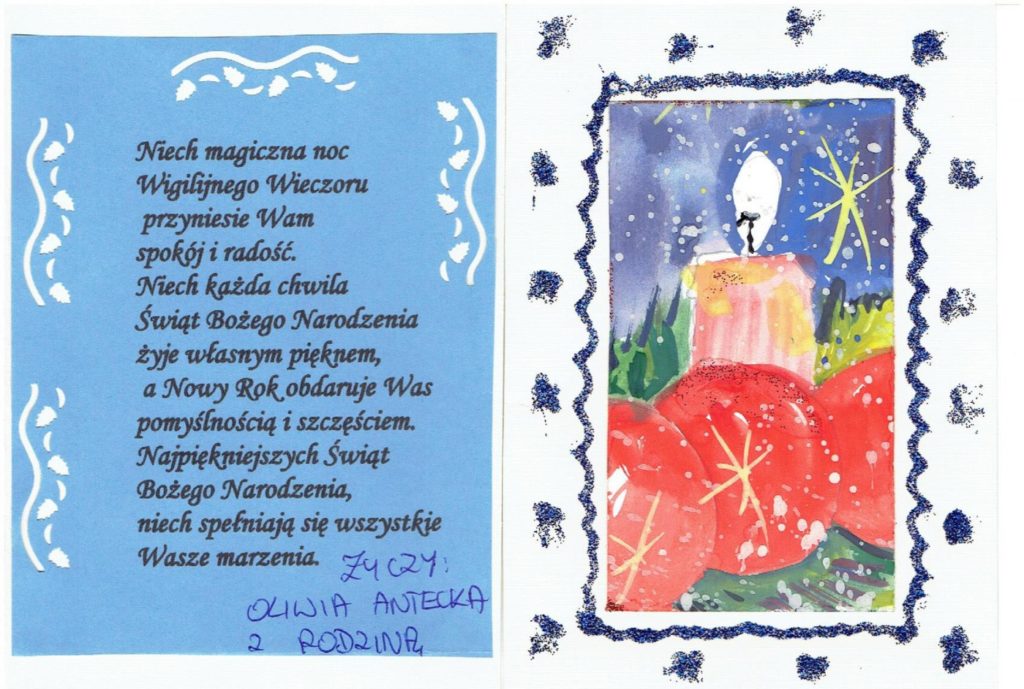 Niech magiczna noc
Wigilijnego Wieczoru
przyniesie Wam
spokój i radość.
Niech każda chwila
Świąt Bożego Narodzenia
żyje własnym pięknem,
a Nowy Rok obdaruje Was
pomyślnością i szczęściem.
Najpiękniejszych Świąt
Bożego Narodzenia,
niech spełniają się wszystkie
Wasze marzenia.
ŻYCZY:
OLIWIA ANTECKA
Z RODZINĄ